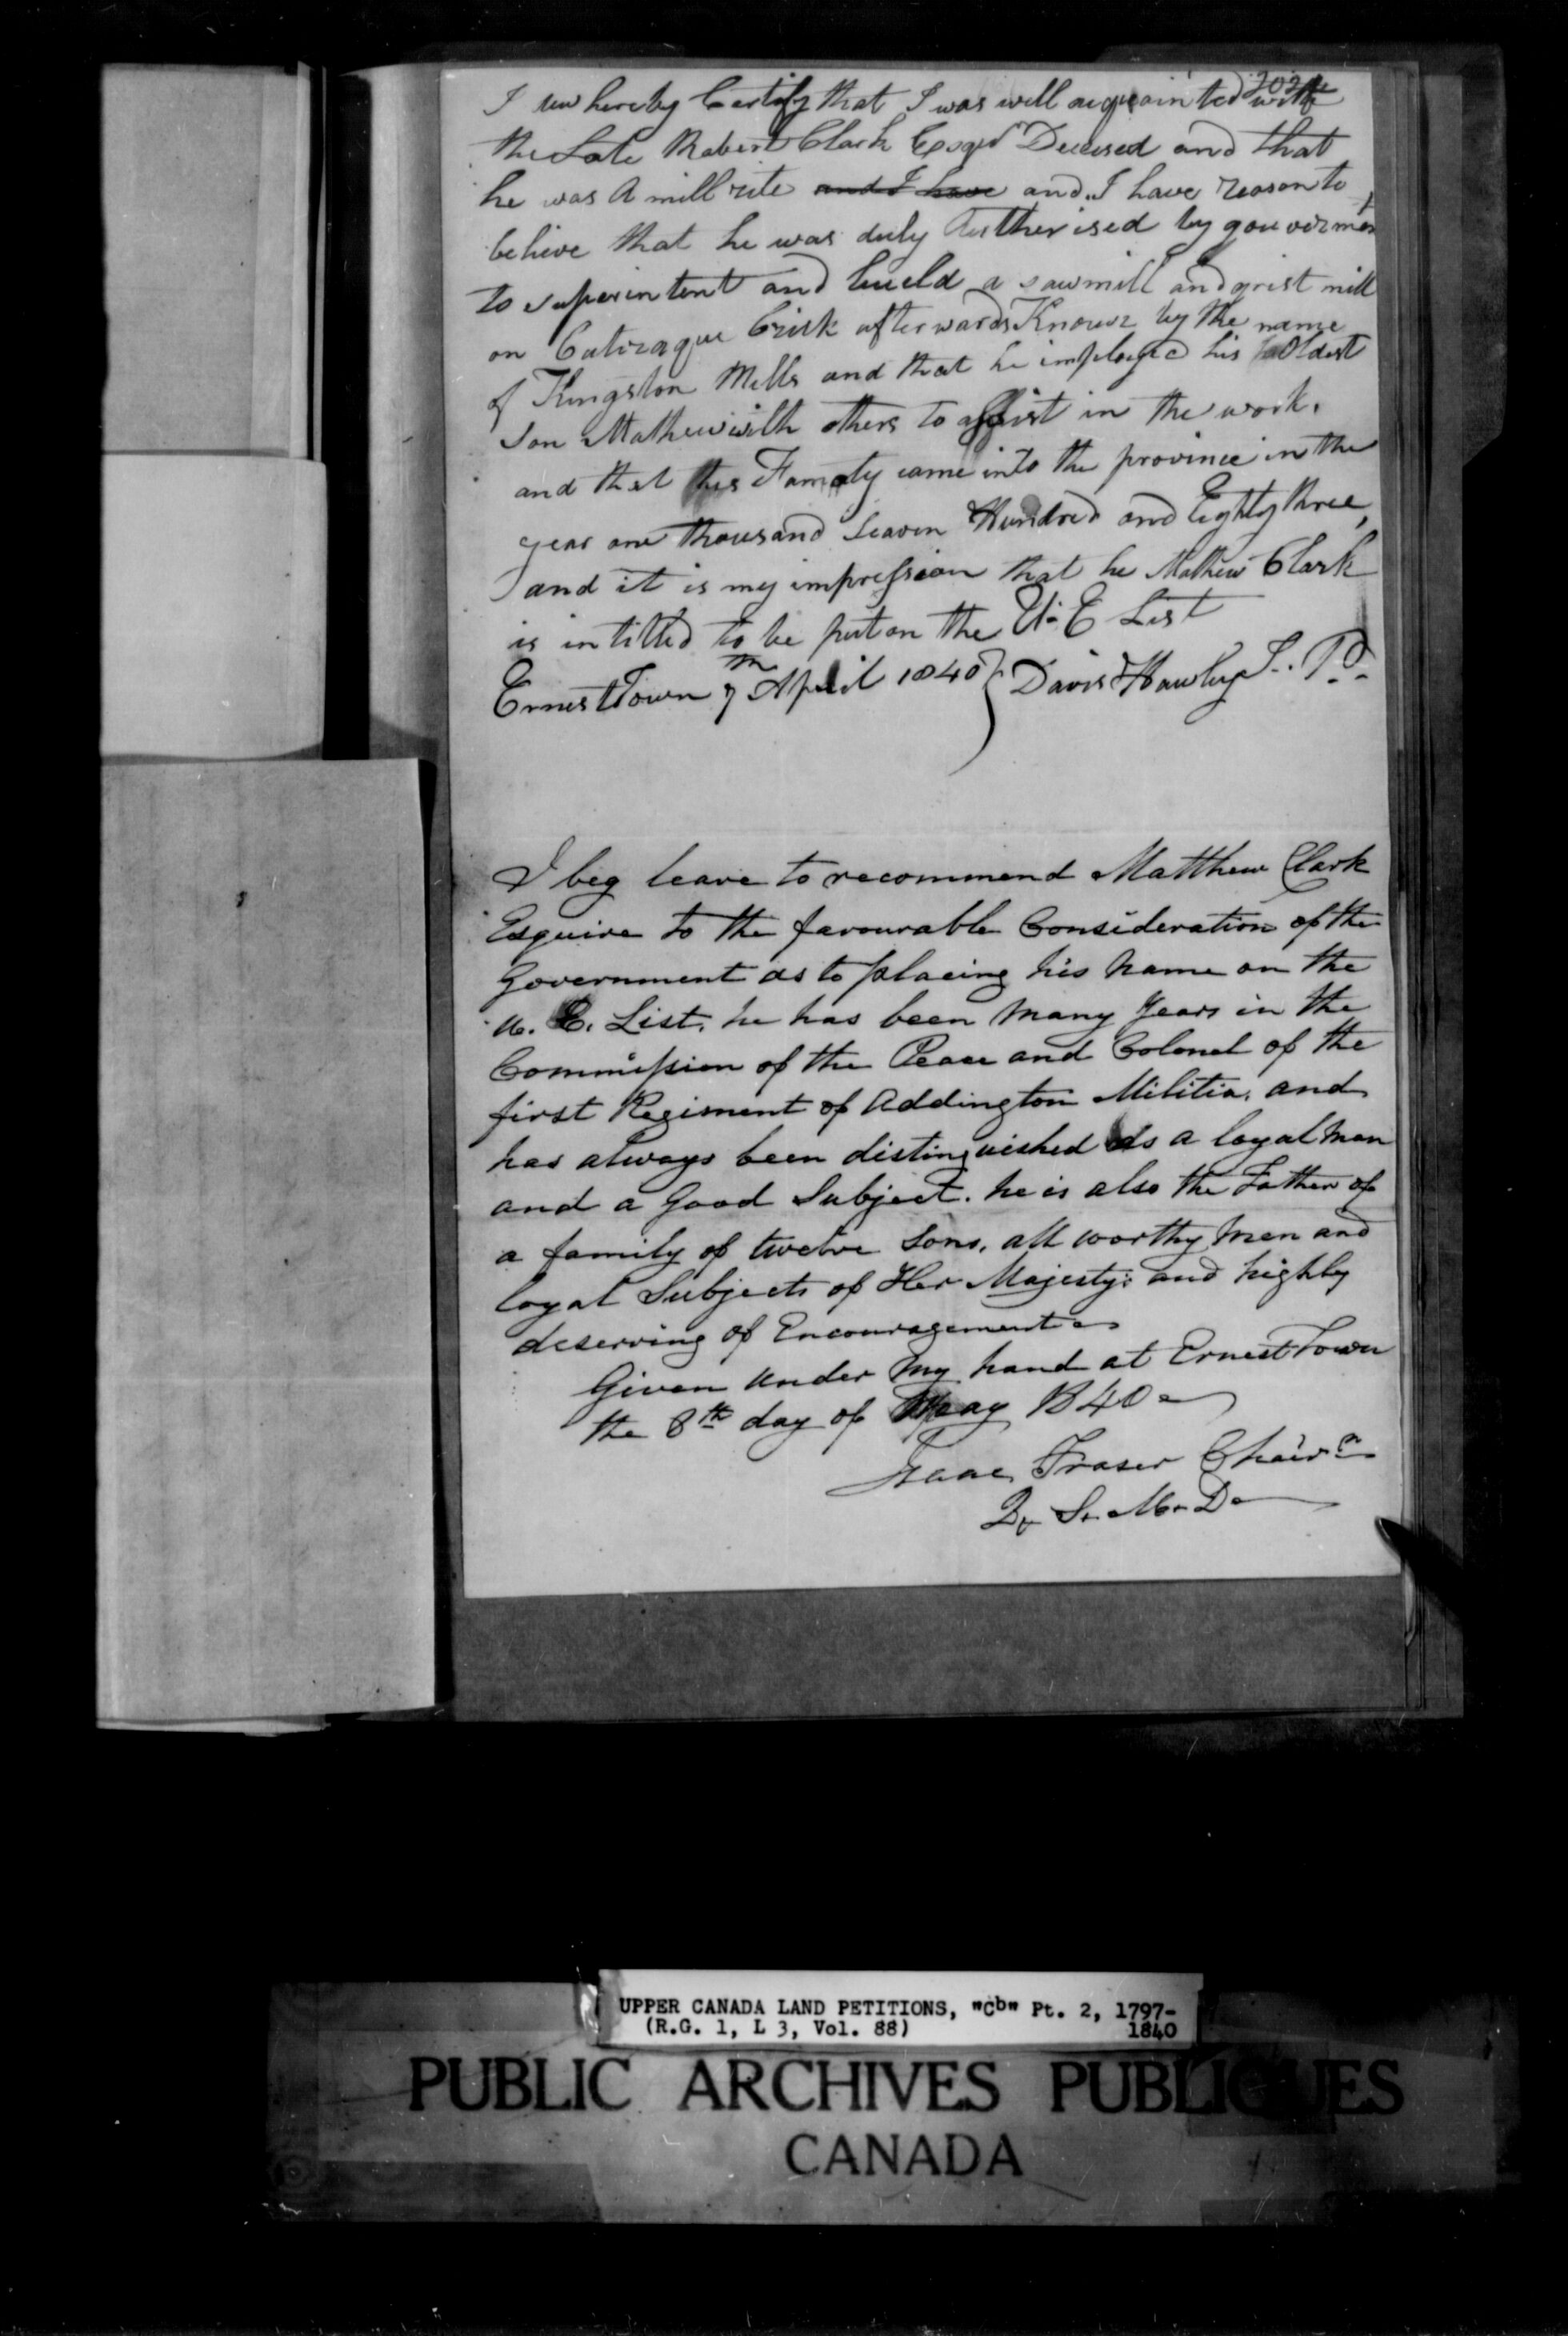 I hereby Certify that I was well acquainted with
the Late Robert Clark Esqr Deceised and that
he was A mill rite and I have and I have reason to
beheive that he was duly Autherised by gouverment
to superintent and bueld a sawmill and grist mill
on Cateraque Crick afterwards Known by the name
of Kingston Mills and that he imployed his Oldest
Son Mathew with others to assist in the work.
and that this Famaly came into the province in the
year one thousand seaven Hundred and Eighty three,
and it is my impression that he Mathew Clark
is intitled to be put on the U. E List
Ernest Town 7th April 1840 } Davis Hawley J. P.
I beg leave to recommend Matthew Clark
Esquire to the favourable Consideration of the
Government as to placing his name on the
U. E. List. he has been many Years in the
Commission of the Peace and Colonel of the
first Regiment of Addington Militia. and
has always been distinguished as a loyal man
and a Good Subject. he is also the Father of
a family of twelve sons. all worthy men and
loyal Subjects of Her Majesty: and highly
deserving of Encouragement
Given under my hand at Ernest Town
the 8th day of May 1840
Isaac Fraser Chairn
Q. S. M. D
UPPER CANADA LAND PETITIONS, "Cb" Pt. 2, 1797-
(R.G. 1, L 3, Vol. 88) 1840
PUBLIC ARCHIVES PUBLIQUES
CANADA